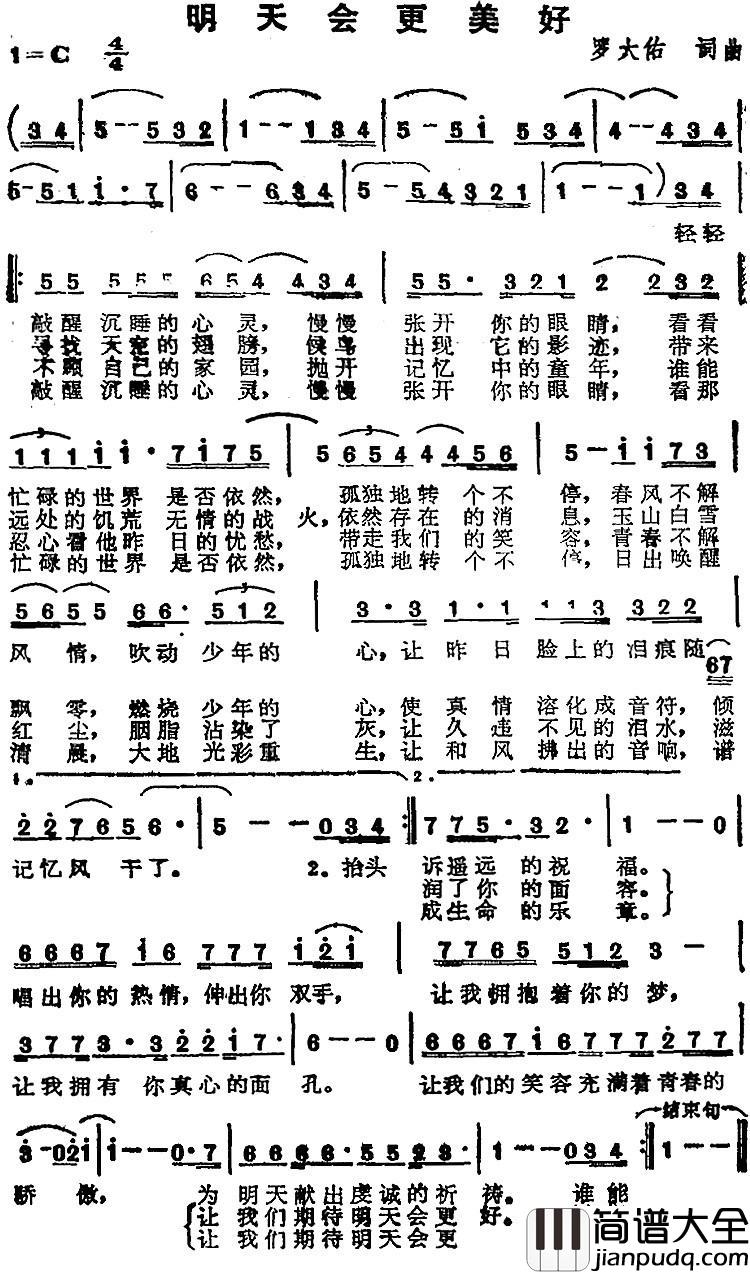 明天会更美好
1=C 4/4 罗大佑 词曲
( 3 4 | 5 - - 5 3 2 | 1 - - 1 3 4 | 5 - 5 i 5 3 4 | 4 - 4 3 4 |
5 - 5 1 i · 7 | 6 - - 6 3 4 | 5 - 5 4 3 2 1 | 1 - - 1 ) 3 4 |
轻轻
5 5 5 5 5 6 5 4 4 3 4 | 5 5 · 3 2 1 2 2 3 2
敲醒沉睡的心灵，慢慢 张开你的眼睛，看看
寻找天空的翅膀，候鸟 出现它的影迹，带来
不顾自己的家园，抛开 记忆中的童年，谁能
敲醒沉睡的心灵，慢慢 张开你的眼睛，看那
3 3
1 1 1 i i · 7 i 7 5 | 5 6 5 4 4 4 5 6 | 5 - i i 7 3
忙碌的世界 是否依然， 孤独地转 个不 停，春风不解
远处的饥荒 无情的战 火，依然存在的消 息，玉山白雪
忍心看他昨 日的忧愁， 带走我们的笑 容，青春不解
忙碌的世界 是否依然， 孤独地转 个不 停，日出唤醒
3
5 6 5 5 6 6 · 5 1 2 | 3 · 3 1 · 1 1 1 3 3 2 2 |
风 情，吹动 少年的 心，让昨日 脸上的泪痕随
6 7
飘 零，燃烧 少年的 心，使真情 溶化成音符，倾
红 尘，胭脂 沾染了 灰，让久违 不见的泪水，滋
清 晨，大地 光彩重 生，让和风 拂出的音响，谱
1。 2。
2 2 7 6 5 6 · | 5 - - 0 3 4 :| 7 7 5 · 3 2 · | 1 - - 0
记忆风 干了。 2。抬头 诉遥远的祝 福。
润了你的面 容。
成生命的乐 章。
6 6 6 7 i 6 7 7 7 i 2 i | 7 7 6 5 5 1 2 3 -
唱出你的热情，伸出你 双手， 让我拥抱着你的梦，
3 7 7 3 · 3 2 2 2 i 7 · | 6 - - 0 | 6 6 6 7 i 6 7 7 7 2 7 7
让我拥有 你真心的面 孔。 让我们的笑容充满着青春的
结束句
3 · 0 2 i | i - - 0 · 7 | 6 6 6 6 · 5 5 2 3 · | 1 - 0 3 4 :| 1 - -
骄 傲， 为 明天献出虔诚的祈 祷。 谁能
让 我们期待明天会更 好。
让 我们期待明天会更
简谱大全
jianpudq.com